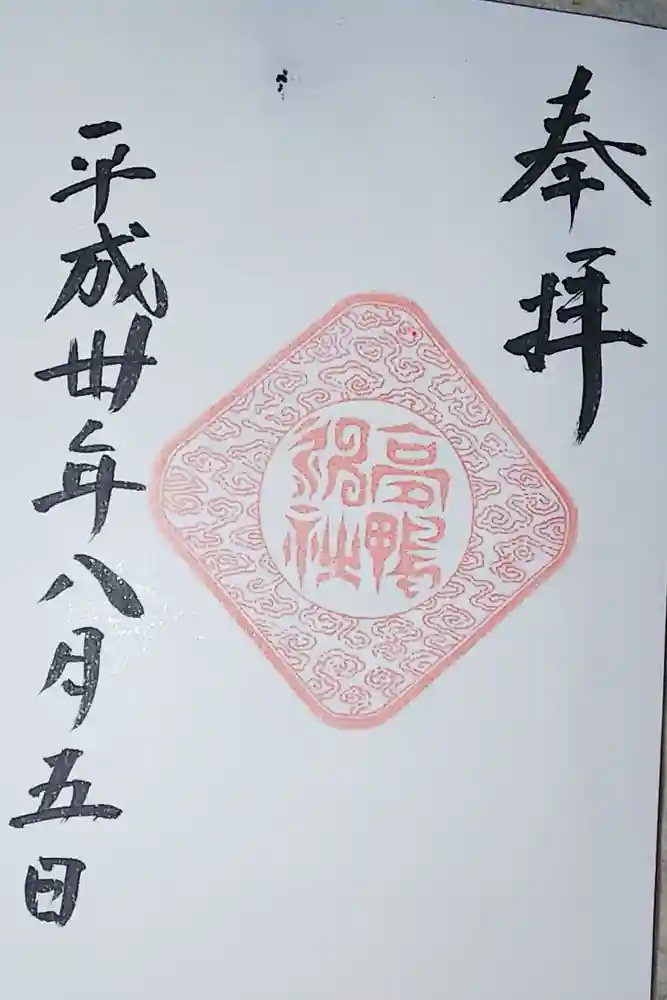 奉拝
高鴨
神社
平成丗年八月五日